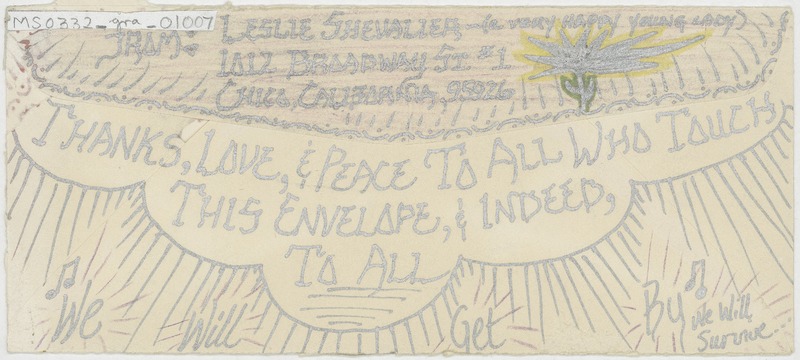 MS0332_gra_01007
FROM: LESLIE SHEVALIER (a VERY HAPPY YOUNG LADY)
1012 BROADWAY ST #1
CHICO, CALIFORNIA, 95926
THANKS, LOVE, & PEACE TO ALL WHO TOUCH
THIS ENVELOPE, & INDEED,
TO ALL
We Will Get By
We Will
Survive